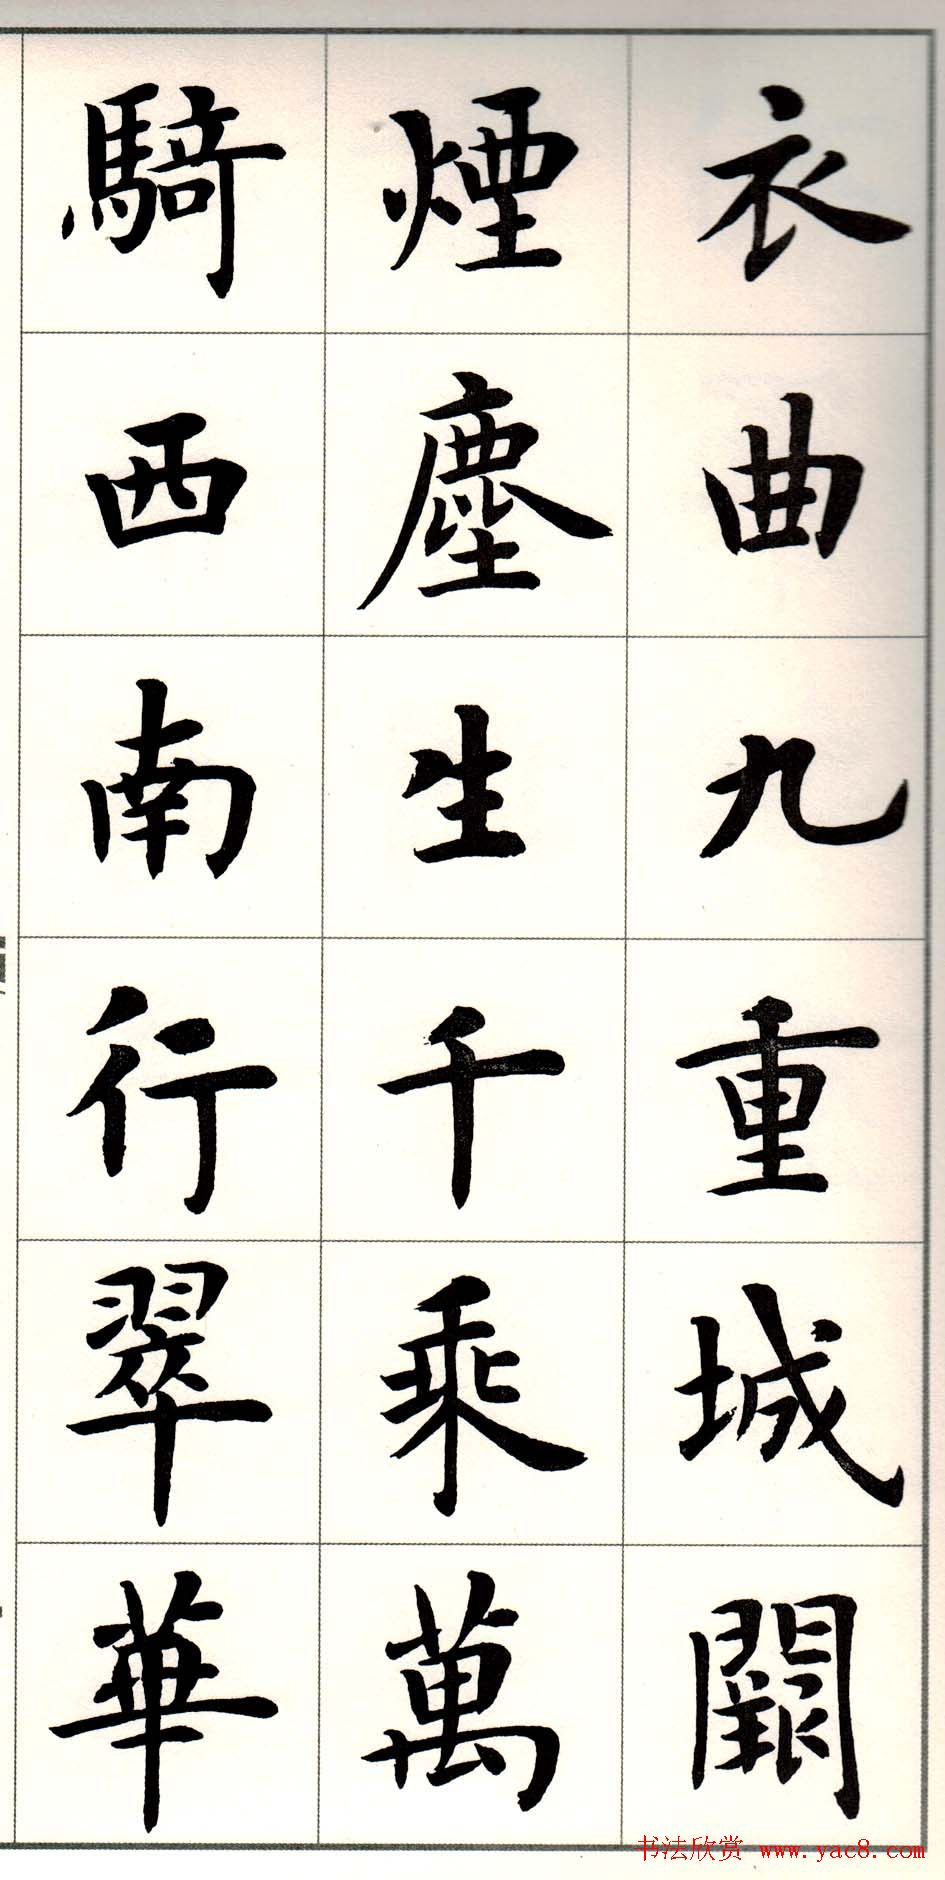 衣曲九重城闕
煙塵生千乘萬
騎西南行翠華
书法欣赏 www.yac8.com